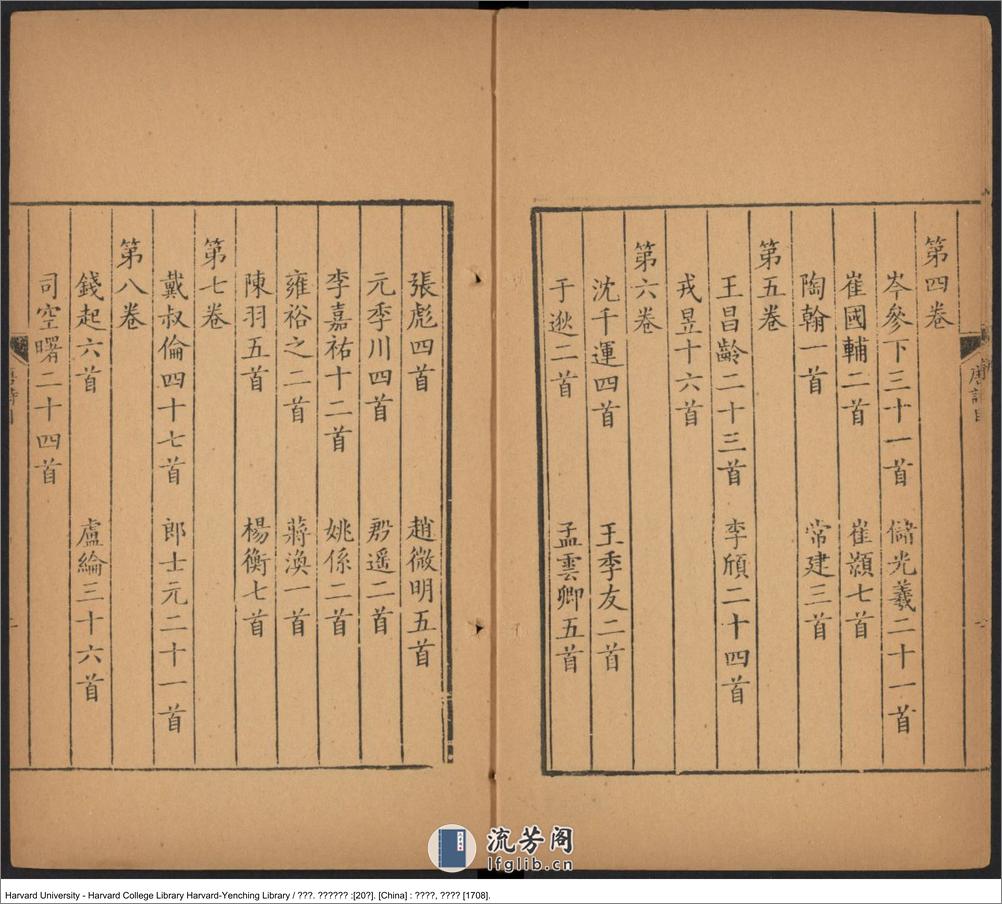 第四卷
岑參下三十一首　儲光羲二十一首
崔國輔二首　崔顥七首
陶翰一首　常建三首
第五卷
王昌齡二十三首　李頎二十四首
戎昱十六首
第六卷
沈千運四首　王季友二首
于逖二首　孟雲卿五首
張彪四首　趙微明五首
元季川四首　遥二首
李嘉祐十二首　姚係二首
雍裕之二首　蔣渙一首
陳羽五首　楊衡七首
第七卷
戴叔倫四十七首　郎士元二十一首
第八卷
錢起六首　盧綸三十六首
司空曙二十四首
流芳阁
lfglib.cn
Harvard University - Harvard College Library Harvard-Yenching Library / ???. ?????? :[20?]. [China] : ????, ???? [1708].